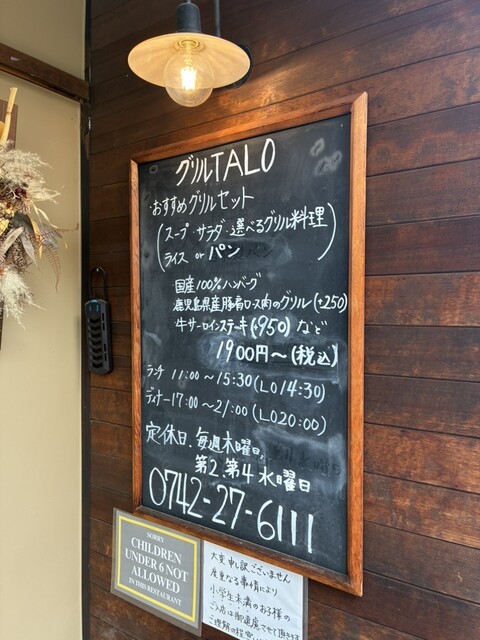 グリルTALO
・おすすめグリルセット
(スープ・サラダ・選べるグリル料理
ライス or パン)
国産100%ハンバーグ
鹿児島県産豚肩ロース肉のグリル(+250)
牛サーロインステーキ(+950)など
1900円〜(税込)
ランチ 11:00〜15:30(LO14:30)
ディナー17:00〜21:00(LO20:00)
定休日、毎週木曜日、
第2、第4水曜日
0742-27-6111
SORRY
CHILDREN
UNDER 6 NOT
ALLOWED
IN THIS RESTAURANT
大変申し訳ございません
度重なる事情により
小学生未満のお子様の
ご入店は御遠慮させて頂きます
ご理解の程